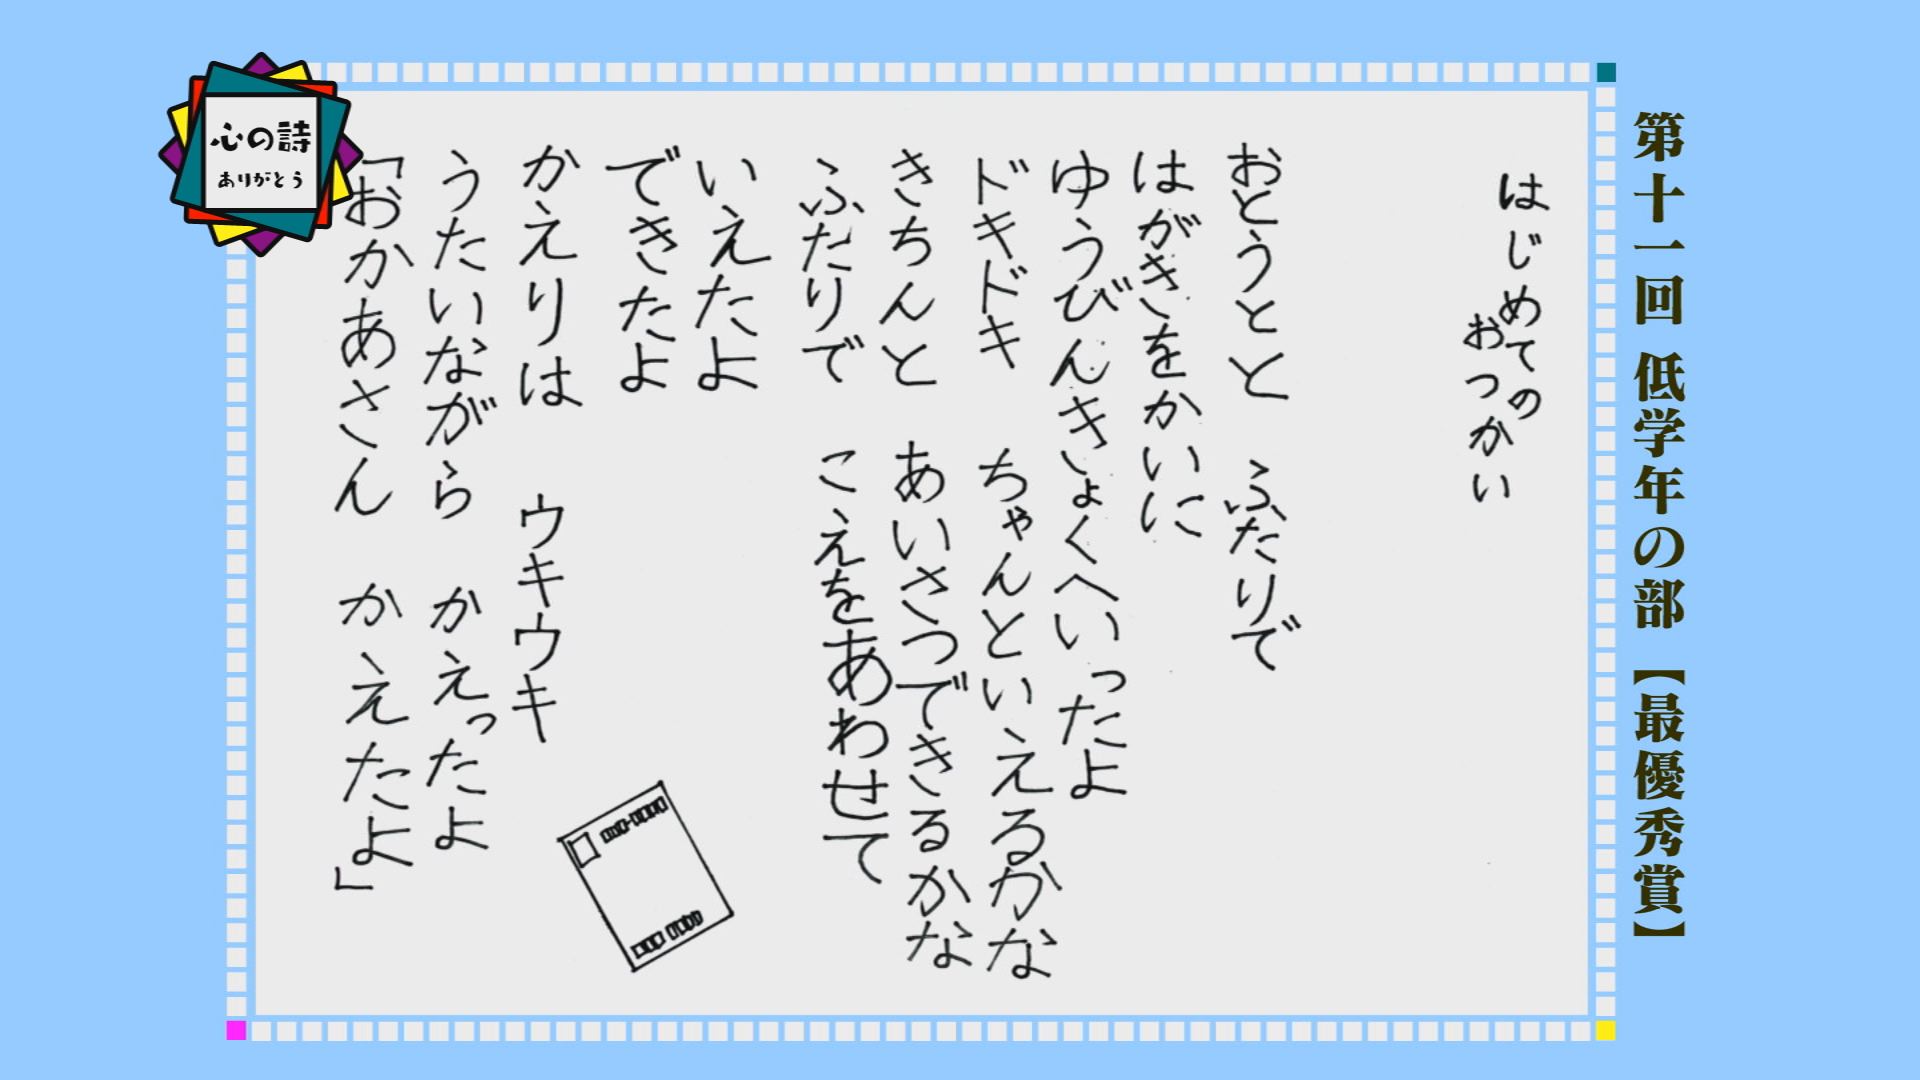 第十一回 低学年の部【最優秀賞】
はじめての
おつかい
おとうとと ふたりで
はがきをかいに
ゆうびんきょくへいったよ
ドキドキ ちゃんといえるかな
きちんと あいさつできるかな
ふたりで こえをあわせて
いえたよ
できたよ
かえりは ウキウキ
うたいながら かえったよ
「おかあさん かえたよ」
心の詩
ありがとう